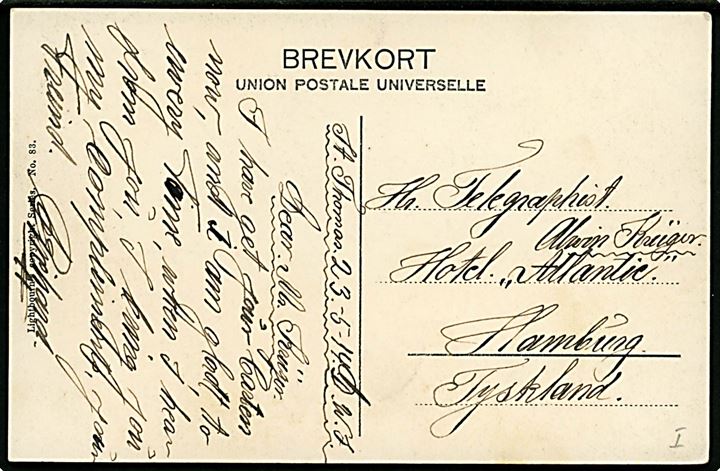 BREVKORT
UNION POSTALE UNIVERSELLE
St. Thomas 23-5-14. D.W.I.
Dear Mr. Krüger.
I have get your Carten
now, and I am glad, to
every time, when I hear
from you, I bring you
my Compliments, your
Freind.
Lightbourn's copyright Series, No. 83.
Hr. Telegraphist.
Alwin Krüger.
Hotel. „Atlantic."
Hamburg.
Tyskland.
I